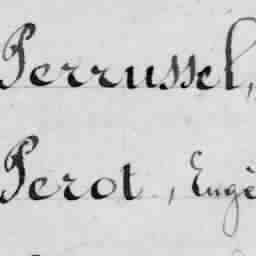 Perrussel,
Perot, Engè